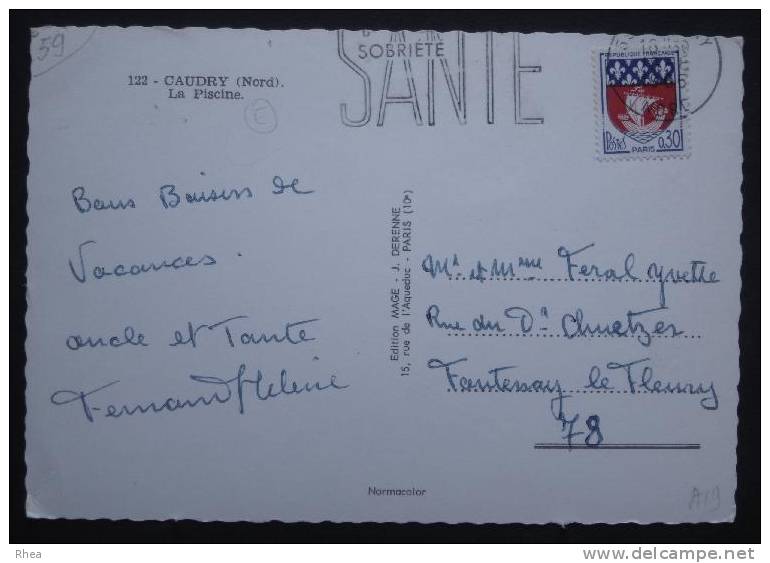 59
SOBRIÉTÉ
SANTE
122 - CAUDRY (Nord).
La Piscine.
E
RÉPUBLIQUE FRANÇAISE
Postes
PARIS
0,30
Bons Baisers de
Vacances.
oncle et Tante
Fernand Hélène
Edition MAGE - J. DERENNE
15, rue de l'Aqueduc - PARIS (10e)
Mr et Mme Feral Yvette
Rue du Dr
Fontenay le Fleury
78
Normacolor
A19
Rhea
http://www.delcampe.net